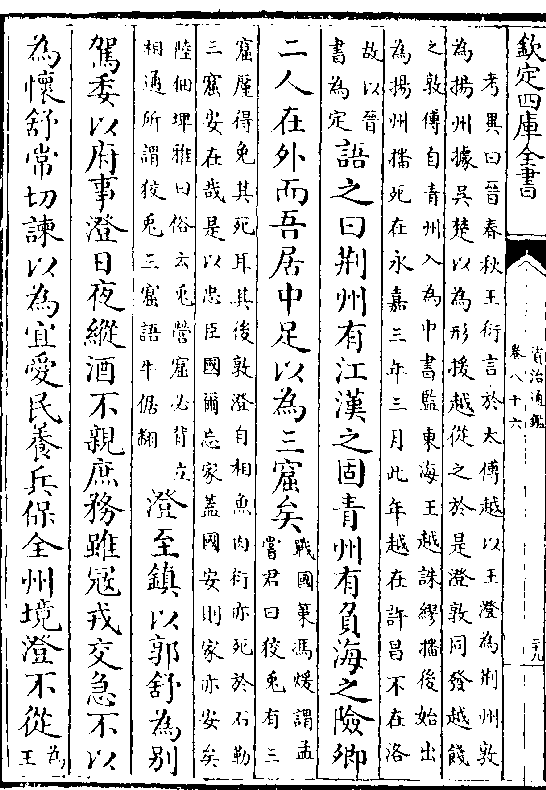 欽定四庫全書
資治通鑑
卷八十六
二十九
考異曰晉春秋王衍言於太傅越以王澄為荆州敦
為揚州據吳楚以為形援越從之於是澄敦同發越餞
之敦傳自青州入為中書監東海王越誅繆播後始出
為揚州播死在永嘉三年三月此年越在許昌不在洛
故以晉
書為定
語之曰荆州有江漢之固青州有負海之險卿
二人在外而吾居中足以為三窟矣
戰國策馮煖謂孟
嘗君曰狡兎有三
窟厪得免其死耳其後敦澄自相魚肉衍亦死於石勒
三窟安在哉是以忠臣國爾忘家蓋國安則家亦安矣
陸佃埤雅曰俗云兎營窟必背立
相通所謂狡兎三窟語牛倨翻
澄至鎮以郭舒為别
駕委以府事澄日夜縱酒不親庶務雖寇戎交急不以
為懷舒常切諫以為宜愛民養兵保全州境澄不從
為
王